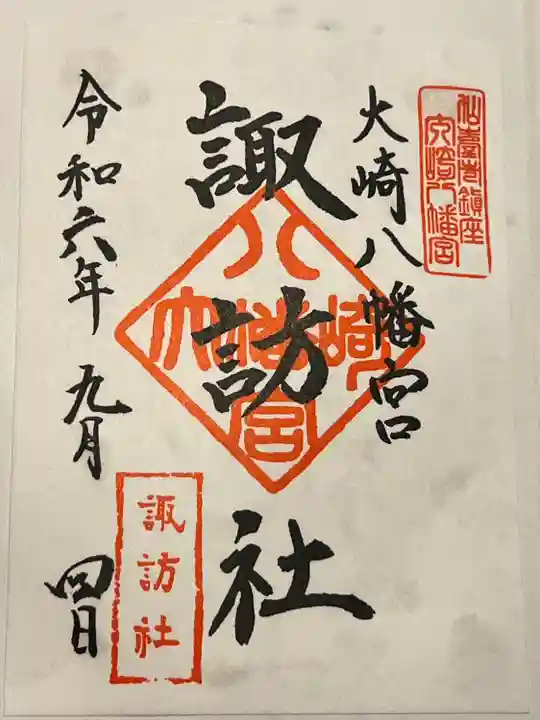 仙臺市鎮座
大崎八幡宮
大崎八幡宮
諏訪社
大崎八幡宮
諏訪社
令和六年九月四日